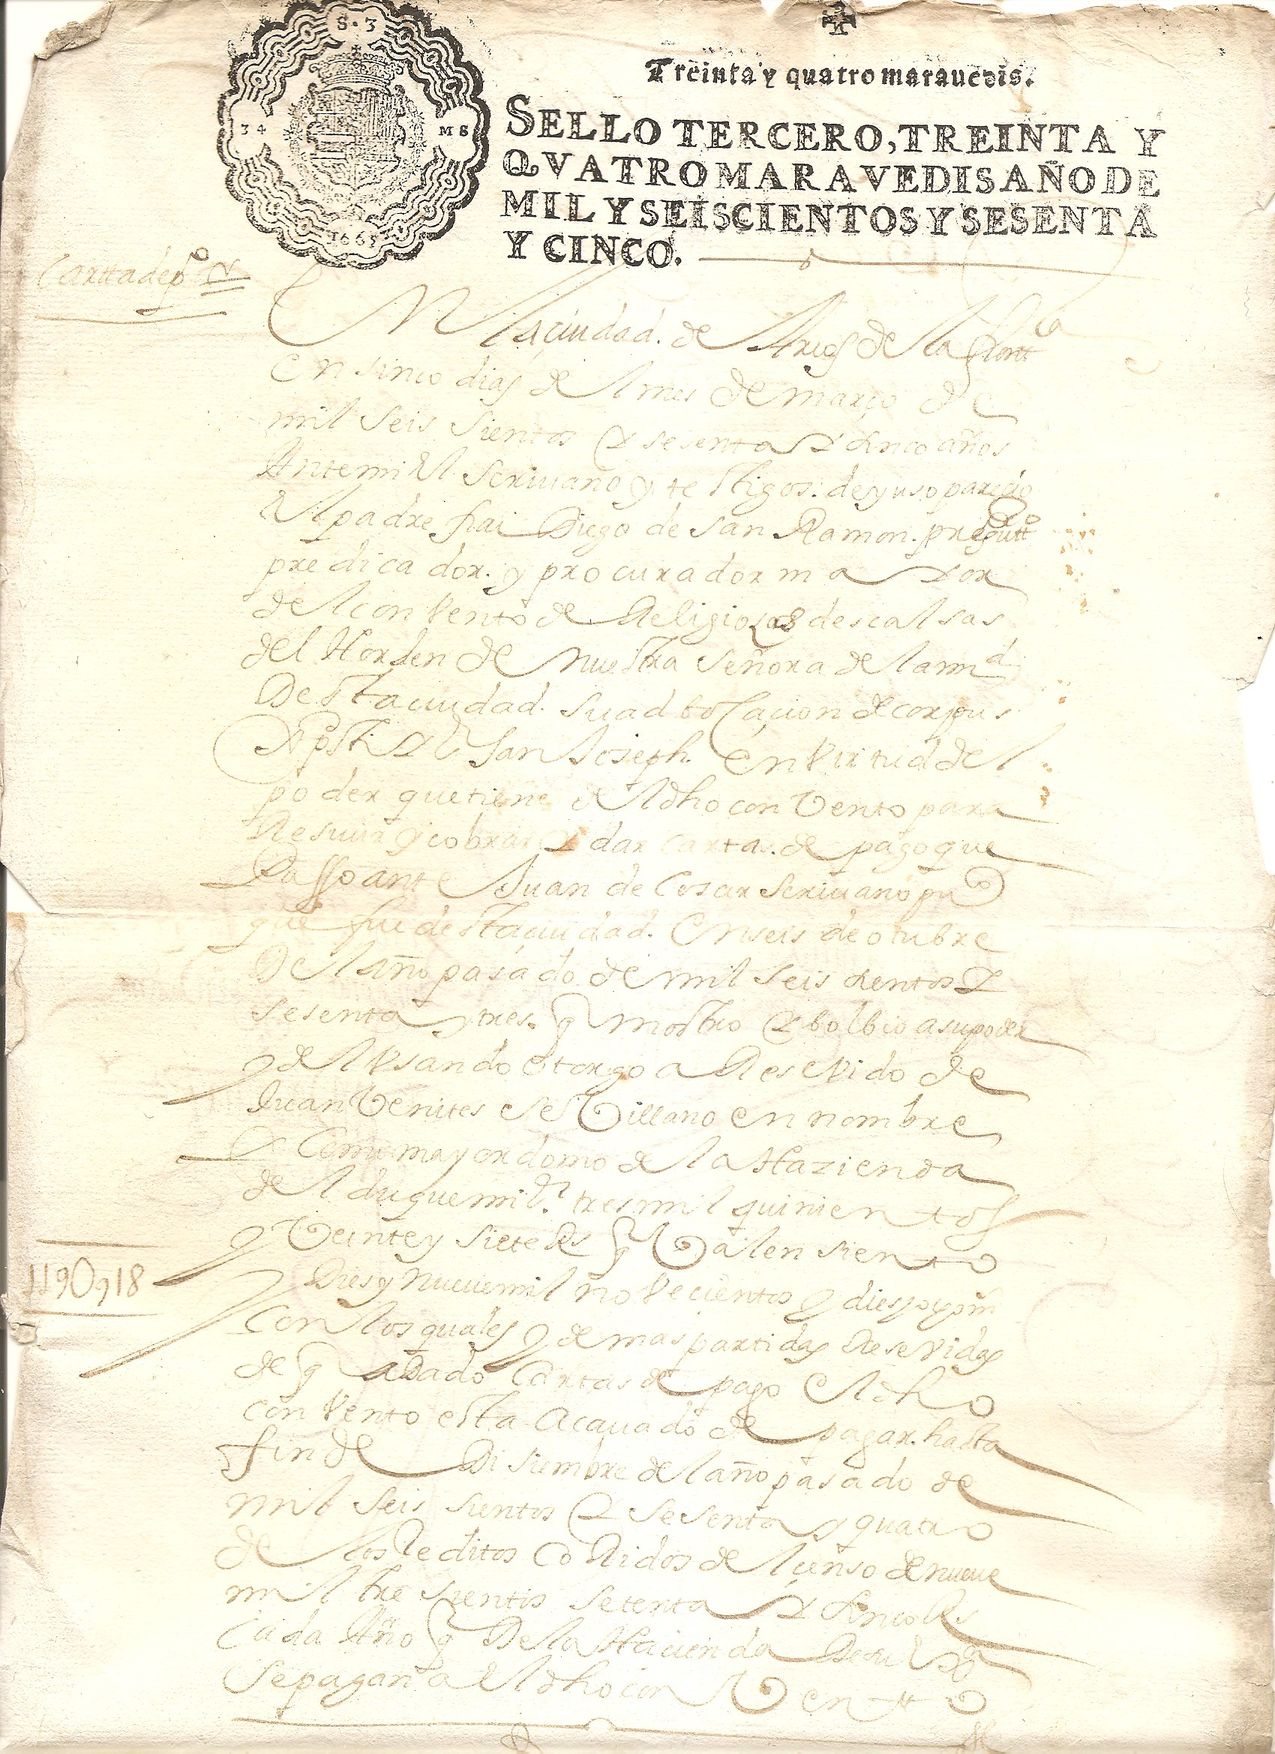 S. 3
34 MS
1665
Treinta y quatro marauedis.
SELLO TERCERO, TREINTA Y
QVATRO MARAVEDIS AÑO DE
MIL Y SEISCIENTOS Y SESENTA
Y CINCO.
Carta de pº
En la ciudad. de Arcos de la front
En sinco dias del mes de março de
mil seis sientos & sesenta & sinco años
Ante mi el scriuano y testigos. de yuso pareçio
El padre frai Diego de san Ramon.
predicador. y procurador maior
del convento de Religiosos descalsos
del Horden de nuestra señora de la md
Desta ciudad. su adbocacion de corpus
Xpsti & san Joseph. en virtud del
poder que tiene del dho convento para
Resiuir y cobrar & dar cartas. de pago que
Passo ante Juan de Cosar scriuano puco
que fue desta ciudad. En seis de otubre
Del año pasado de mil seis sientos &
sesenta y tres. q mostro & bolbio a su poder
y del vsando otorgo a Resevido de
Juan Venites de Villano en nombre
& Como mayordomo de la Hazienda
del duque mi sr. tres mil quinientos
y Veinte y siete Rs q Valen siento
Dies y nueue mil novecientos y
1190918
Con los quales y demas partidas Resevidas
de q a dado Cartas de pago el dho
convento esta acavado de pagar. hasta
fin de Disiembre del año pasado de
mil seis sientos & sesenta y quatro
de los Reditos Coridos del censo de nueve
mil tresientos setenta & sinco Rs
Cada Año q De la Hacienda De su
se pagan al dho convento